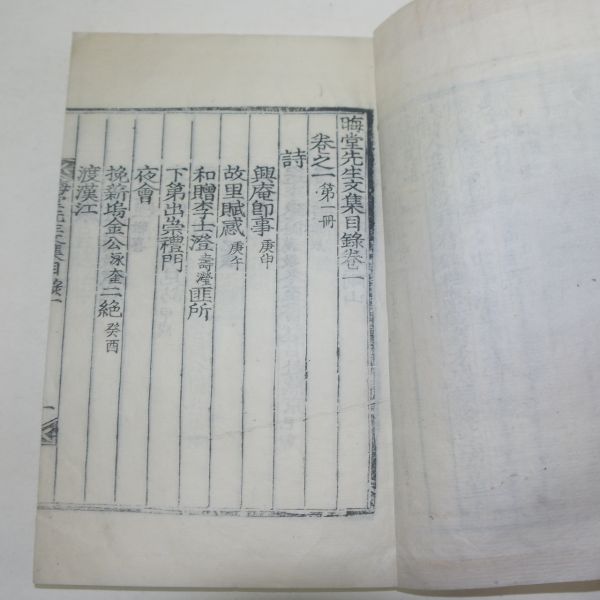 晦堂先生文集目錄卷一
卷之一 第一冊
詩
興庵即事 庚申
故里賦感 庚午
和贈李士澄 壽瀅 匪所
下第出崇禮門
夜會
挽新塢金公 泳奎 二絶 癸酉
渡漢江
晦堂先生文集目錄 一
一